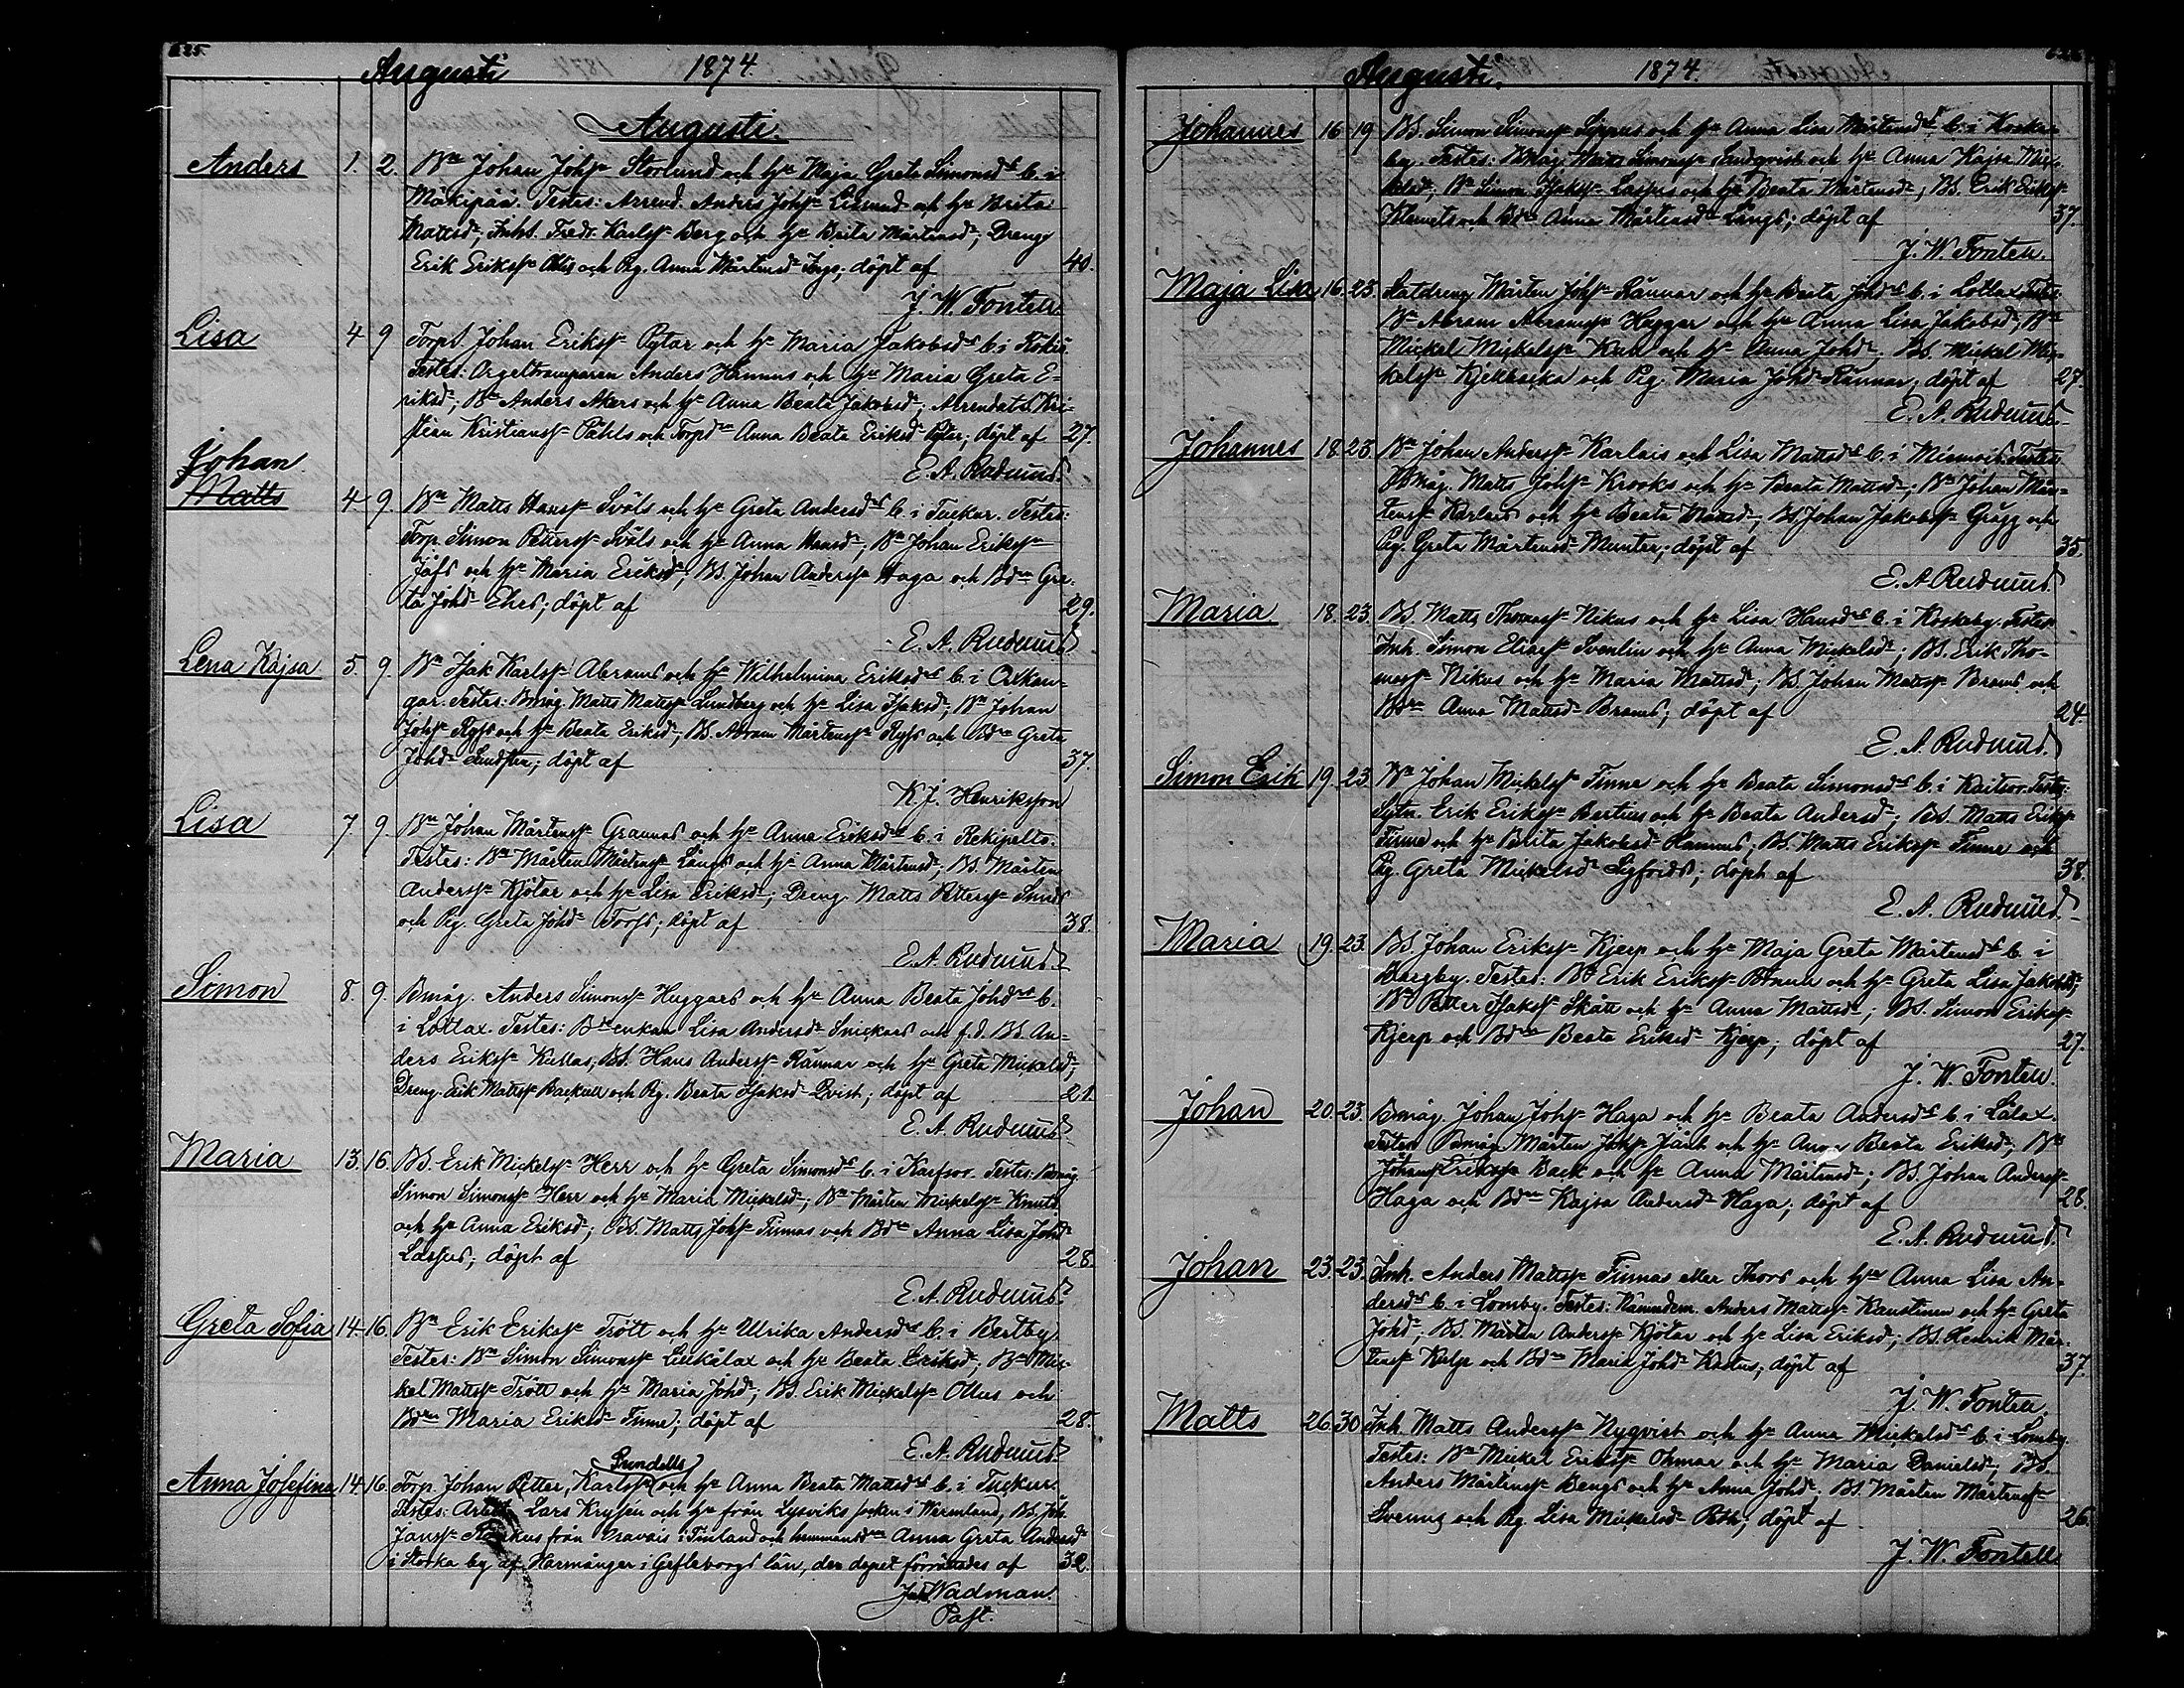 225.
Augusti 1874.
Augusti.
Anders 1. 2. Bn Johan Johss Storlund och hu Maja Greta Simonsdr b. i
Mäkipää. Testes: Arrend. Anders Johss Liemud och hu Brita
Mattsdr; Inhs. Fredr. Karlss Berg och hu Brita Mårtensdr; Dreng
Erik Erikss och Pig. Anna Mårtensdr Ings; döpt af 40.
J. W. Fontell
Lisa 4 9 Torp. Johan Erikss Pytar och hu Maria Jakobsdr b. i Rökiö.
Testes: Orgeltramparen Anders Hannus och hu Maria Greta E-
riksdr; Bn Anders Akers och hu Anna Beata Jakobsdr; Arrendats. Kri-
stian Kristianss Påhls och Torpdn Anna Beata Eriksdr Pytar; döpt af 27.
E. A. Rudnäs
Johan
Matts 4 9 Bn Matts Hanss Svöls och hu Greta Andersdr b. i Tuckur. Testes:
Torp. Simon Petterss Svöls och hu Anna Hansdr; Bn Johan Erikss
Jåfs och hu Maria Eriksdr; BS. Johan Anderss Haga och Bdn Gre-
ta Johdr Ehes; döpt af 29.
E. A. Rudnäs
Lena Kajsa 5. 9. Bn Isak Karlss Abrams och hu Wilhelmina Eriksdr b. i Oxkan-
gar. Testes: Bmåg. Matts Mattss Lundberg och hu Lisa Isaksdr; Bn Johan
Johss Ryss och hu Beata Eriksdr; BS. Abram Mårtenss Ryss och Bdn Greta
Johdr Lindsten; döpt af 37.
K. J. Henriksson
Lisa 7. 9. Bn Johan Mårtenss Grannas och hu Anna Eriksdr b. i Rekipelto.
Testes: Bn Mårten Mårtenss Längs och hu Anna Mårtensdr; BS. Mårten
Anderss Kjötar och hu Lisa Eriksdr; Dreng Matts Petterss Smeds
och Pig. Greta Johdr Torss; döpt af 38.
E. A. Rudnäs
Simon 8. 9. Bmåg. Anders Simonss Huggars och hu Anna Beata Johdr b.
i Lotlax. Testes: Bdeenkan Lisa Andersdr Snickars och f.d. BS. An-
ders Erikss Kullas; BS. Hans Anderss Rännar och hu Greta Mickelsdr;
Dreng. Erik Mattss Backull och Pig. Beata Isaksdr Qvist; döpt af 21.
E. A. Rudnäs
Maria 13. 16. BS. Erik Mickelss Herr och hu Greta Simonsdr b. i Karfsor. Testes: Bmåg
Simon Simonss Herr och hu Maria Mickelsdr; Bn Mårten Mickelss Knuts
och hu Anna Eriksdr; BS. Matts Johss Finnas och Bdn Anna Lisa Johdr
Lassus; döpt af 28.
E. A. Rudnäs
Greta Sofia 14. 16. Bn Erik Erikss Trött och hu Ulrika Andersdr b. i Bertby.
Testes: Bn Simon Simonss Lukålax och hu Beata Eriksdr; Bn Mic-
kel Mattss Trött och hu Maria Johdr; BS. Erik Mickelss Ollus och
Bdn Maria Eriksdr Finne; döpt af 28.
E. A. Rudnäs
Anna Josefina 14. 16. Torp. Johan Petter Karlsson Sundells och hu Anna Beata Mattsdr b. i Tuckur.
Testes: Arbet. Lars Krysén och hu från Lysviks socken i Wermland, BS. Joh.
Janss från Oravais i Finland och hemmansdn Anna Greta Andersdr
i Stocka by af Harmånger i Gefleborgs län, der dopet förrättades af 32.
Joh. Wadman.
Past.
Augusti. 1874.
Johannes 16 19 BS. Simon Simonss Sippus och hu Anna Lisa Mårtensdr b. i Koske-
by. Testes: Bmåg. Matts Simonss Sandqvist och hu Anna Kajsa Mic-
kelsdr; Bn Simon Isakss Lassus och hu Beata Mårtensdr; BS. Erik Erikss
Klemets och Bdn Anna Mårtensdr Längs; döpt af 37.
J. W. Fontell.
Maja Lisa 16. 23. Statdreng Mårten Johss Rännar och hu Beata Johdr b. i Lotlax. Testes:
Bn Abram Abramss Huggar och hu Anna Lisa Jakobsdr; Bn
Mickel Mickelss Kull och hu Anna Johdr; BS. Mickel Mic-
kelss Kjellbacka och Pig. Maria Johdr Rännar; döpt af 27.
E. A. Rudnäs
Johannes 18. 23. Bn Johan Anderss Karlais och Lisa Mattsdr b. i Miemois. Testes:
Bmåg. Matts Johss Krooks och hu Beata Mattsdr; Bn Johan Mår-
tenss Karlais och hu Beata Mattsdr; BS Johan Jakobss Grägg och
Pig. Greta Mårtensdr Munter; döpt af 35.
E. A. Rudnäs
Maria 18. 23. BS. Matts Thomass Nikus och hu Lisa Hansdr b. i Koskeby. Testes:
Inh. Simon Eliass Svenlin och hu Anna Mickelsdr; BS. Erik Tho-
mass Nikus och hu Maria Mattsdr; BS. Johan Mattss Brams och
Bdn Anna Mattsdr Brams; döpt af 24.
E. A. Rudnäs
Simon Erik 19. 23. Bn Johan Mickelss Finne och hu Beata Simonsdr b. i Kaitsor. Testes:
Sytn. Erik Erikss Bertius och hu Beata Andersdr; BS. Matts Erikss
Finne och hu Brita Jakobsdr Hannus; BS. Matts Erikss Finne och
Pig. Greta Mickelsdr Sigfrids; döpt af 38.
E. A. Rudnäs
Maria 19. 23. BS. Johan Erikss Kjerp och hu Maja Greta Mårtensdr b. i
Bergby. Testes: Bn Erik Erikss Brunn och hu Greta Lisa Jakobsdr;
Bn Petter Isakss Skått och hu Anna Mattsdr; BS. Simon Erikss
Kjerp och Bdn Beata Eriksdr Kjerp; döpt af 27.
J. W. Fontell.
Johan 20. 23. Bmåg. Johan Johss Haga och hu Beata Andersdr b. i Lålax.
Testes: Bmåg Mårten Johss Jåult och hu Anna Beata Eriksdr; Bn
Johan Erikss Back och hu Anna Mårtensdr; BS. Johan Anderss
Haga och Bdn Kajsa Andersdr Haga; döpt af 28.
E. A. Rudnäs
Johan 23. 23. Inh. Anders Mattss Finnas eller Thors och hu Anna Lisa An-
dersdr b. i Lomby. Testes: Nämndem. Anders Mattss Kaustinen och hu Greta
Johdr; BS. Mårten Anderss Kjötar och hu Lisa Eriksdr; BS. Henrik Mår-
tenss Kulp och Bdn Maria Johdr Kastus; döpt af 37.
J. W. Fontell.
Matts 26. 30 Inh. Matts Anderss Nyqvist och hu Anna Mickelsdr b. i Lomby.
Testes: Bn Mickel Erikss Öhmar och hu Maria Danielsdr; BS.
Anders Mårtenss Bengs och hu Anna Johdr. BS. Mårten Mårtenss
Svenns och Pig. Lisa Mickelsdr Röth; döpt af 26.
J. W. Fontell